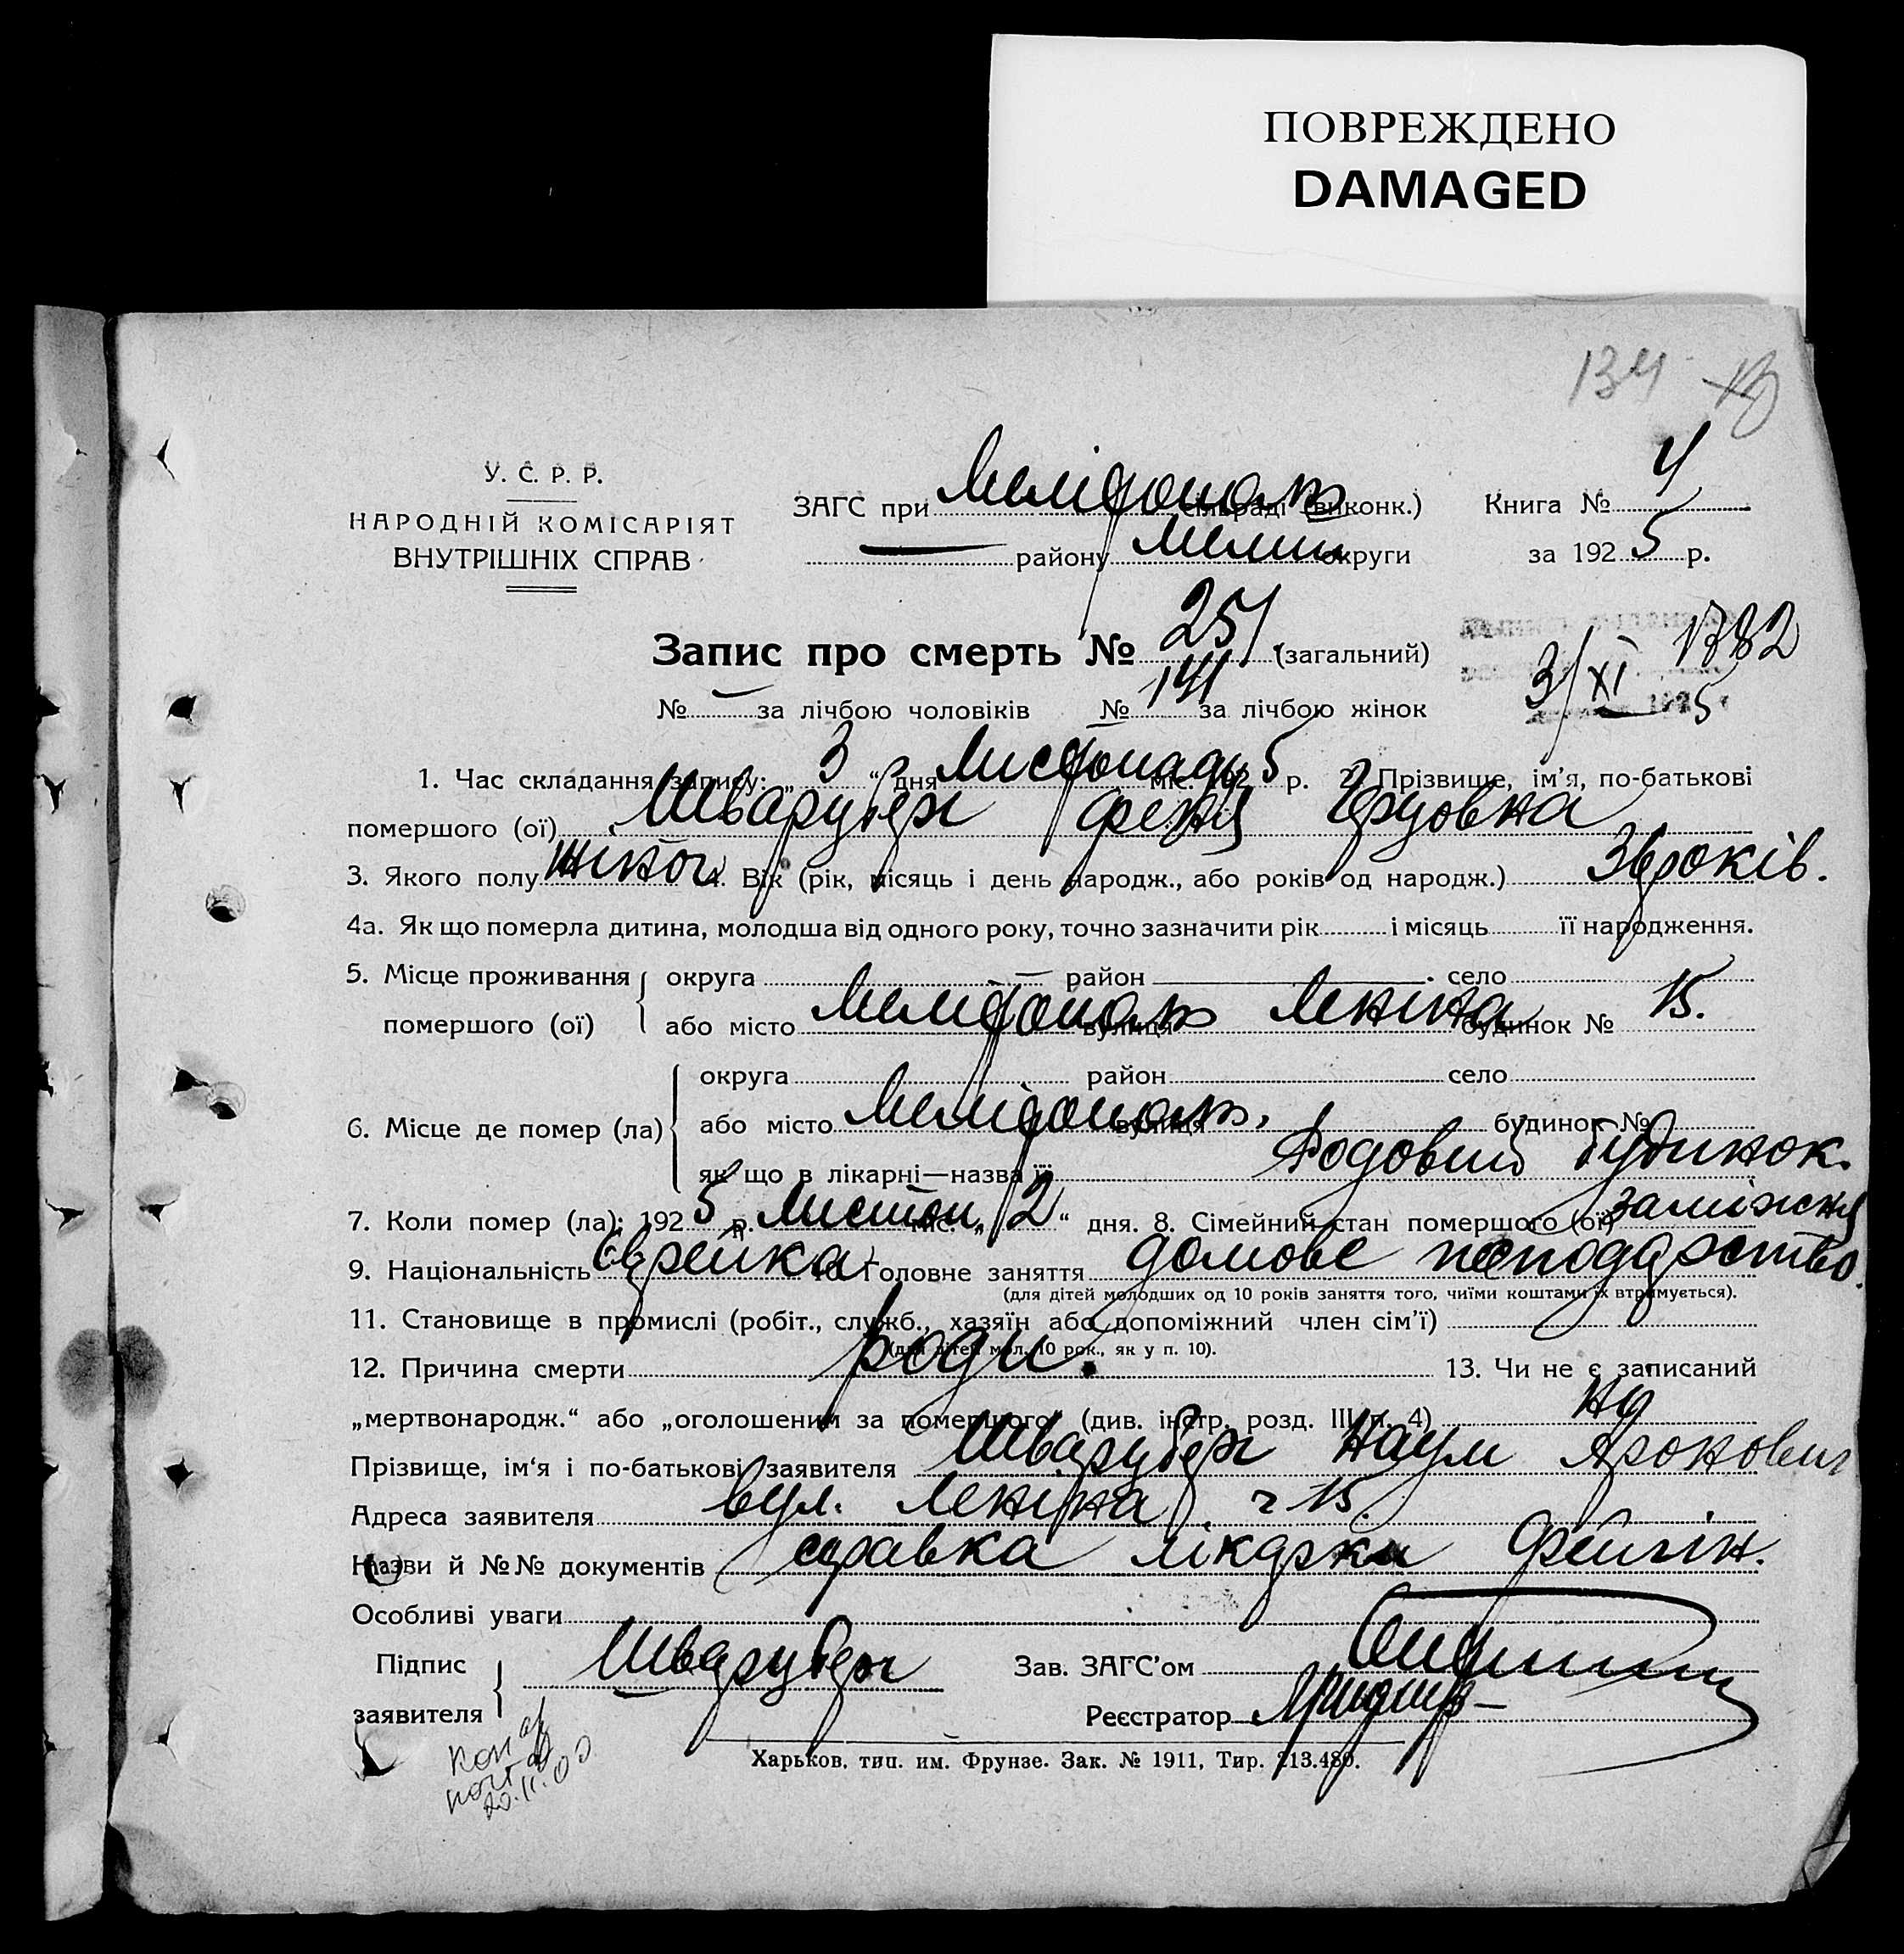 ПОВРЕЖДЕНО
DAMAGED
134
У. С. Р. Р.
НАРОДНІЙ КОМІСАРІЯТ
ВНУТРІШНІХ СПРАВ
ЗАГС при Меліфополь сільраді (виконк.)
Книга № 4
— району Мелит округи
за 1925 р.
Запис про смерть № 251 (загальний)
1782
3/XI 5
№ — за лічбою чоловіків № 141 за лічбою жінок
1. Час складання запису: „3“ дня Листопаду міс. 1925 р. 2. Прізвище, ім'я, по-батькові
помершого (ої) Шварцберг Феня
3. Якого полу жіноч 4. Вік (рік, місяць і день народж., або років од народж.) 36 років.
4а. Як що померла дитина, молодша від одного року, точно зазначити рік і місяць її народження.
5. Місце проживання помершого (ої)
округа — район — село
або місто Меліфополь вулиця Леніна будинок № 15.
6. Місце де помер (ла)
округа район село
або місто Меліфополь, вулиця будинок №
як що в лікарні—назва її Родовий будинок.
7. Коли помер (ла): 1925 р. Листоп. міс. „2“ дня. 8. Сімейний стан помершого (ої) заміжня
9. Національність Єврейка 10. Головне заняття домове господарство.
(для дітей молодших од 10 років заняття того, чиїми коштами їх втримується).
11. Становище в промислі (робіт., служб., хазяїн або допоміжний член сім'ї)
(для дітей мол. 10 рок., як у п. 10).
12. Причина смерти роди. 13. Чи не є записаний
„мертвонародж.“ або „оголошеним за помершого“ (див. інстр. розд. III п. 4) ні
Прізвище, ім'я і по-батькові заявителя Шварцберг Наум Аронович
Адреса заявителя вул. Леніна ч 15.
Назви й №№ документів справка лікарки Фейгін.
Особливі уваги
Підпис заявителя Шварцберг
Зав. ЗАГС'ом
Реєстратор
Харьков, тип. им. Фрунзе. Зак. № 1911, Тир. 213.480.